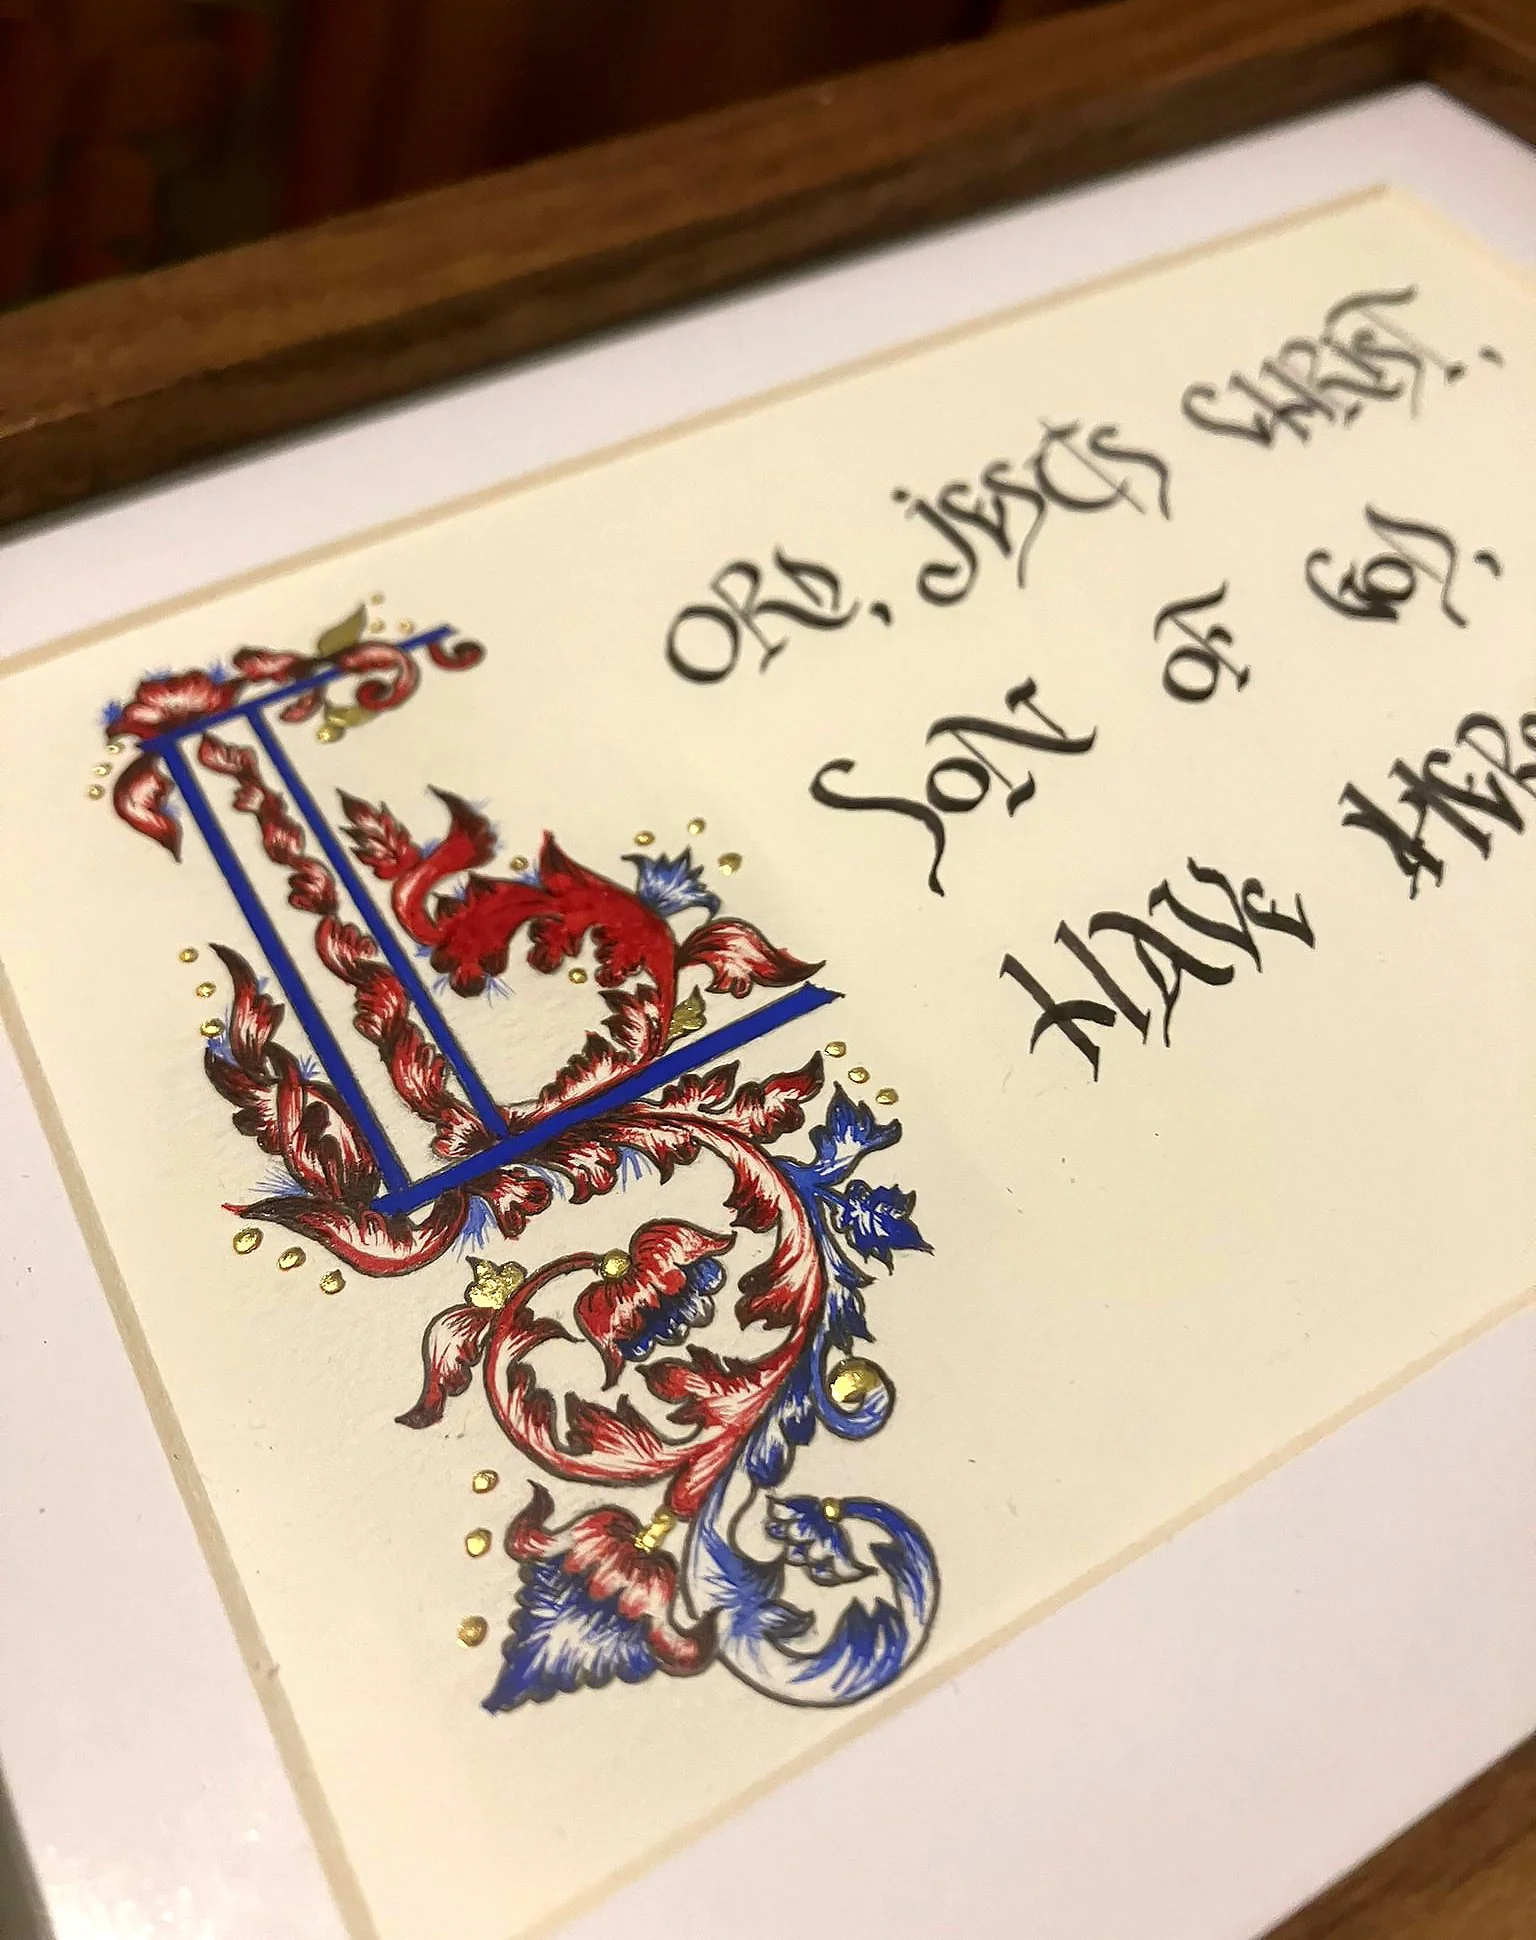 LORD, JESUS CHRIST,
SON OF GOD,
HAVE MER